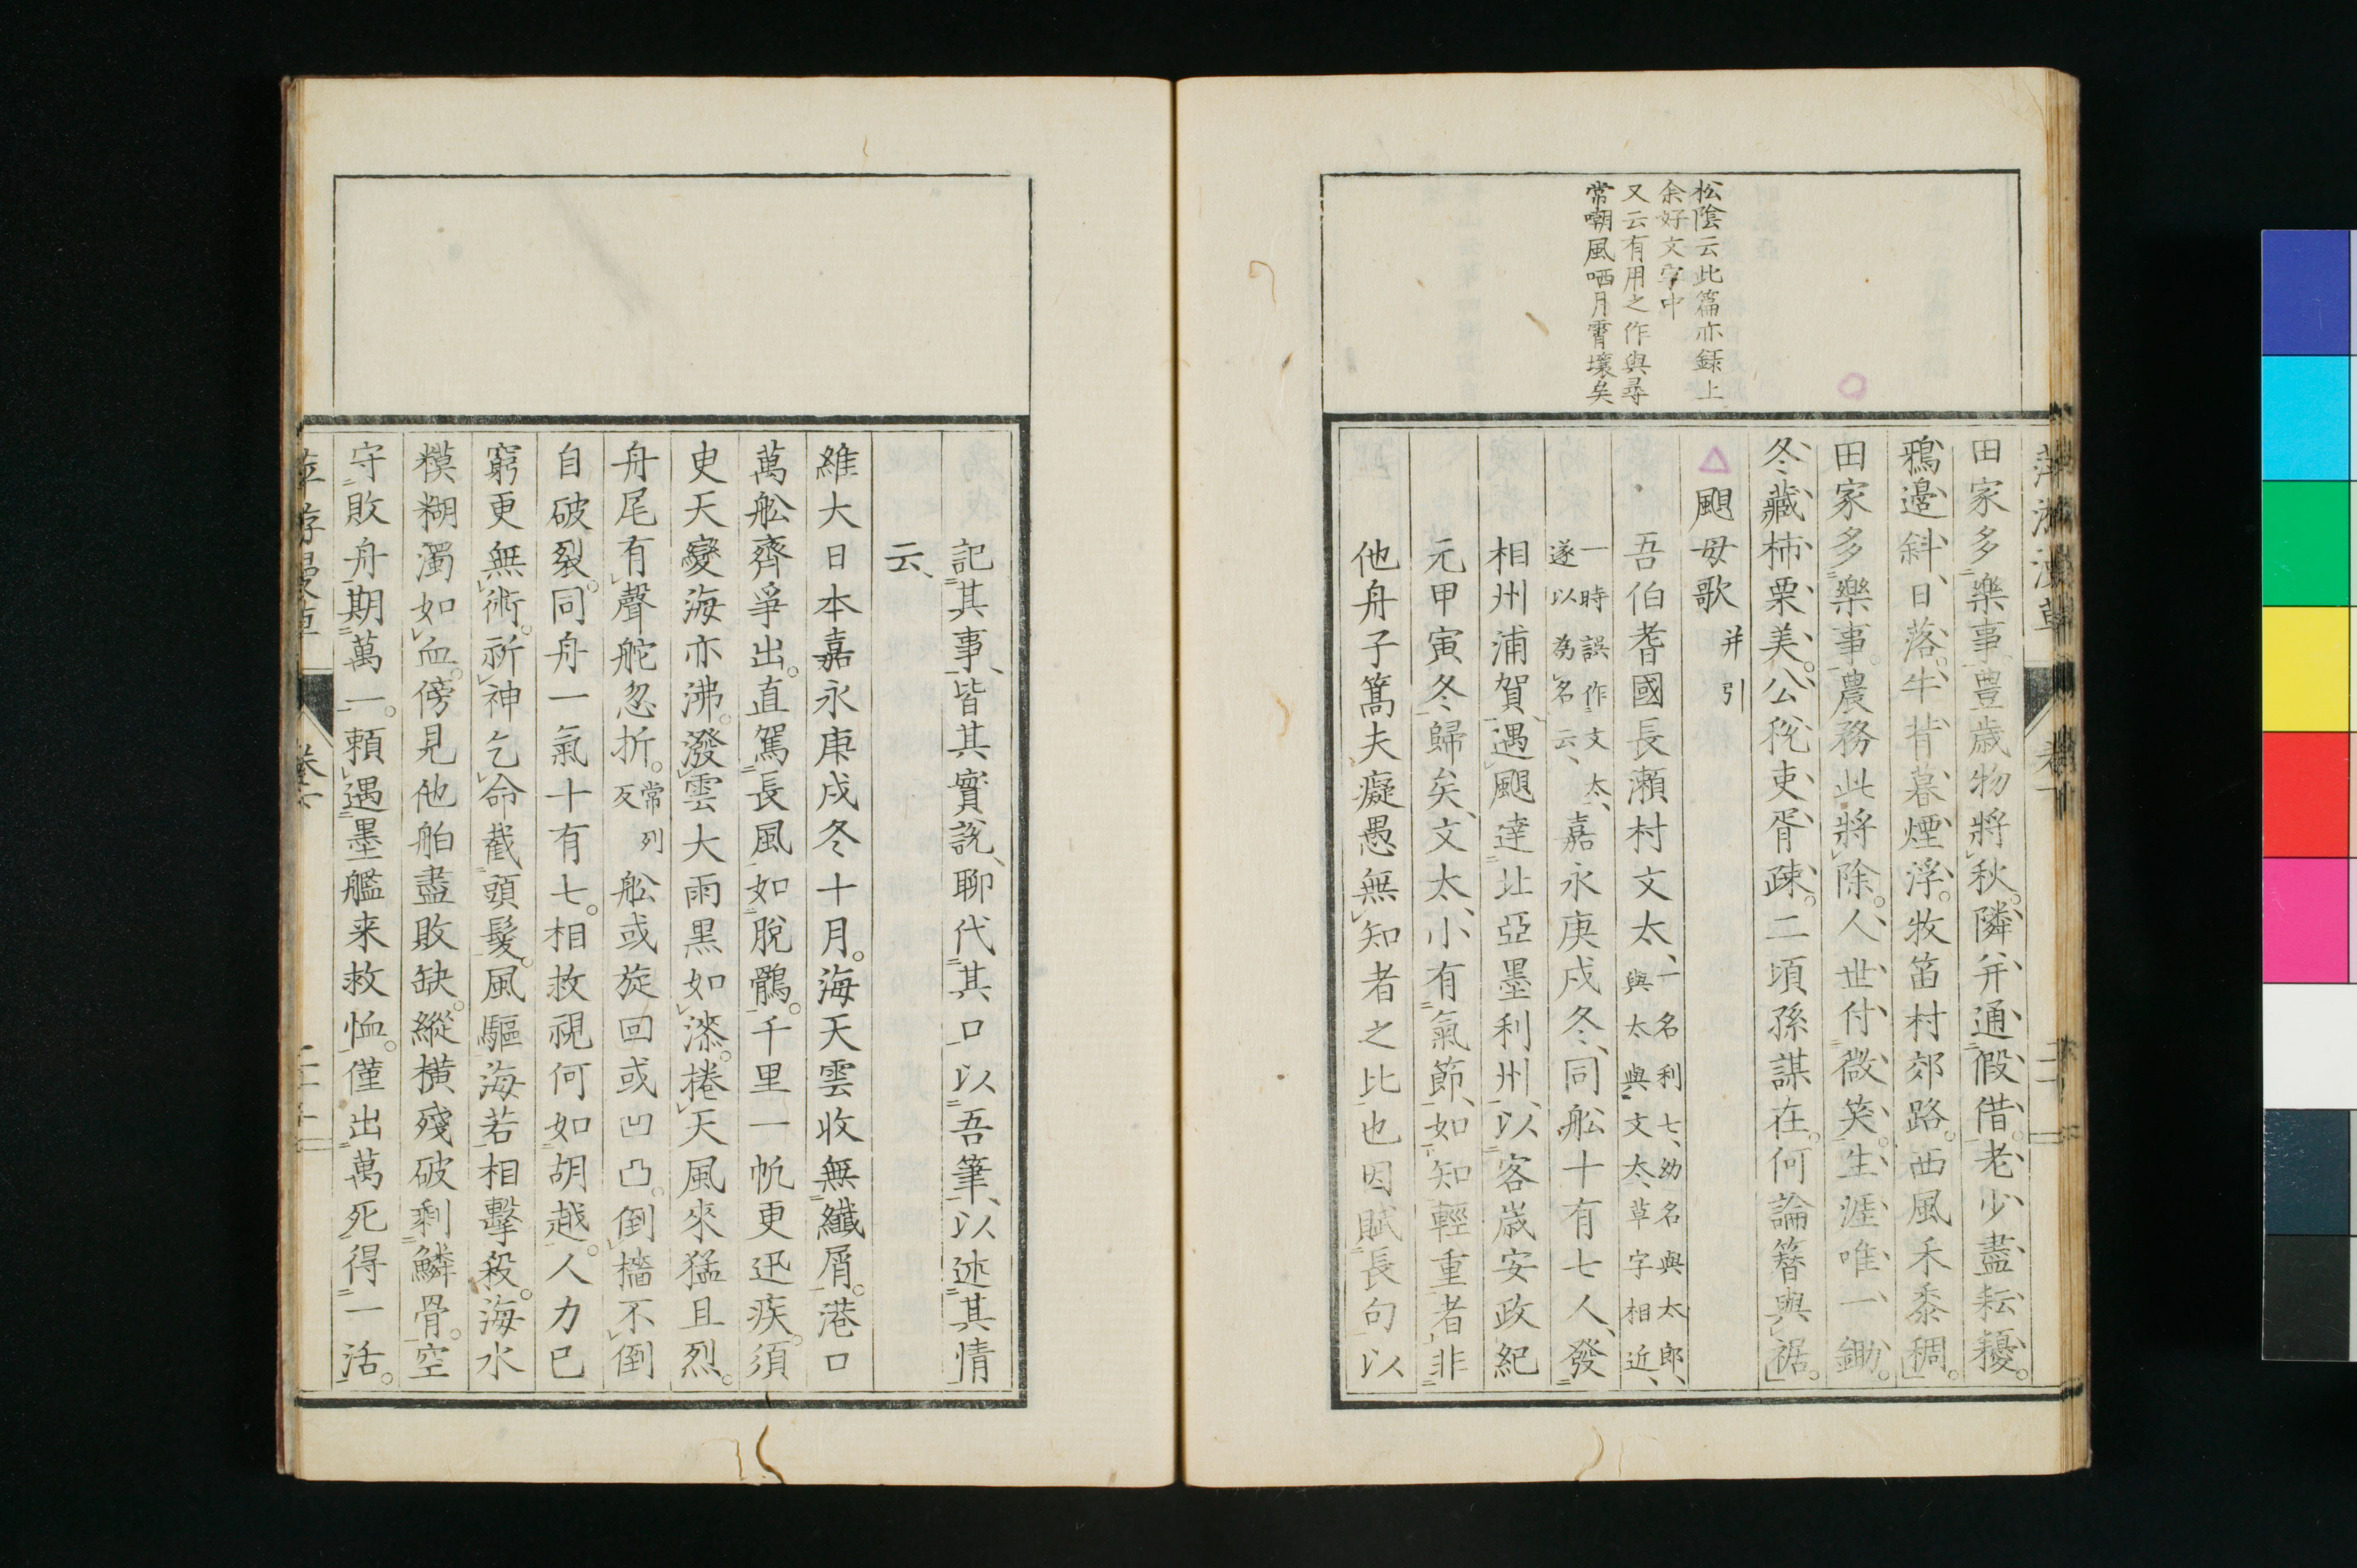 松陰云此篇亦録上
余好文字中
又云有用之作與尋
常嘲風哂月霄壤矣
田家多樂事豊歳物將秋。隣、井、通、假、借。老、少、盡、耘、耰。
鴉、邊、斜、日、落。牛、背、暮、煙、浮。牧笛村郊路。西風禾黍稠。
田家多樂事。農務此將除。人、世、付、微、笑。生、涯、唯、一、鋤。
冬、藏、柿、栗、美。公、税、吏、胥、疎。二頃孫謀在。何論簪與裾。
△颶母歌 并引
吾伯耆國長瀬村文太、一名利七、幼名與太郎、與太與文太、草字相近、
一時誤作文太、遂以為名云、嘉永庚戌冬、同舩十有七人、發
相州浦賀、遇颶達北亞墨利州、以客歳安政紀
元甲寅冬歸矣、文太、小有氣節、如知輕重者、非
他舟子篙夫癡愚無知者之比也因賦長句以
記其事、皆其實説、聊代其口以吾筆、以述其情
云、
維大日本嘉永庚戌冬十月。海天雲收無纖屑。港口
萬舩齊爭出。直駕長風如脱鶻。千里一帆更迅疾。須
臾天變海亦沸。潑雲大雨黒如漆。捲天風來猛且烈。
舟尾有聲舵忽折。常列反 舩或旋回或凹凸。倒檣不倒
自破裂。同舟一氣十有七。相救視何如胡越。人力已
窮更無術。祈神乞命截頭髮。風驅海若相擊殺。海水
糢糊濁如血。傍見他舶盡敗缺。縱横殘破剩鱗骨。空
守敗舟期萬一。頼遇墨艦来救恤。僅出萬死得一活。